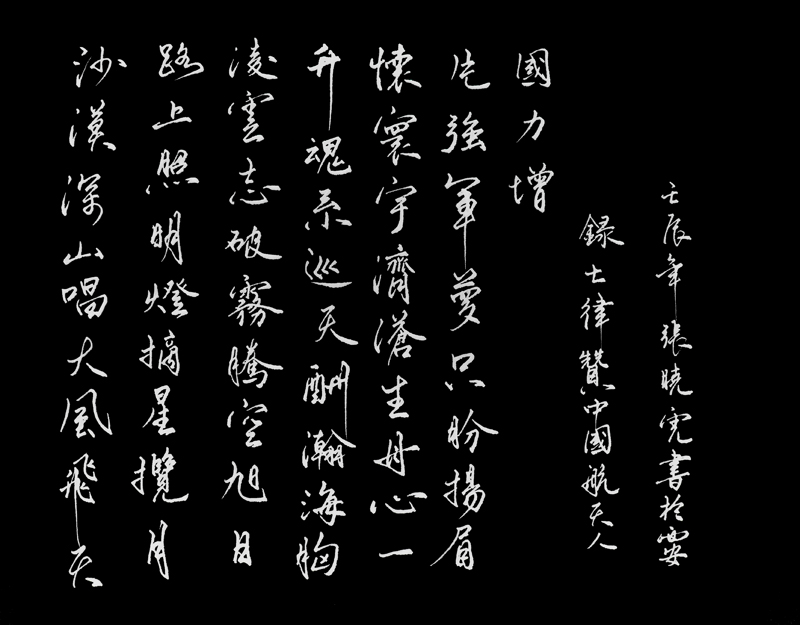 沙漠深山唱大風飛天
路上照明燈摘星攬月
凌雲志破霧騰空旭日
升魂系巡天酬瀚海胸
懷寰宇濟滄生丹心一
片強軍夢只盼揚眉
國力增
錄七律贊中國航天人
壬辰年張曉書於西安